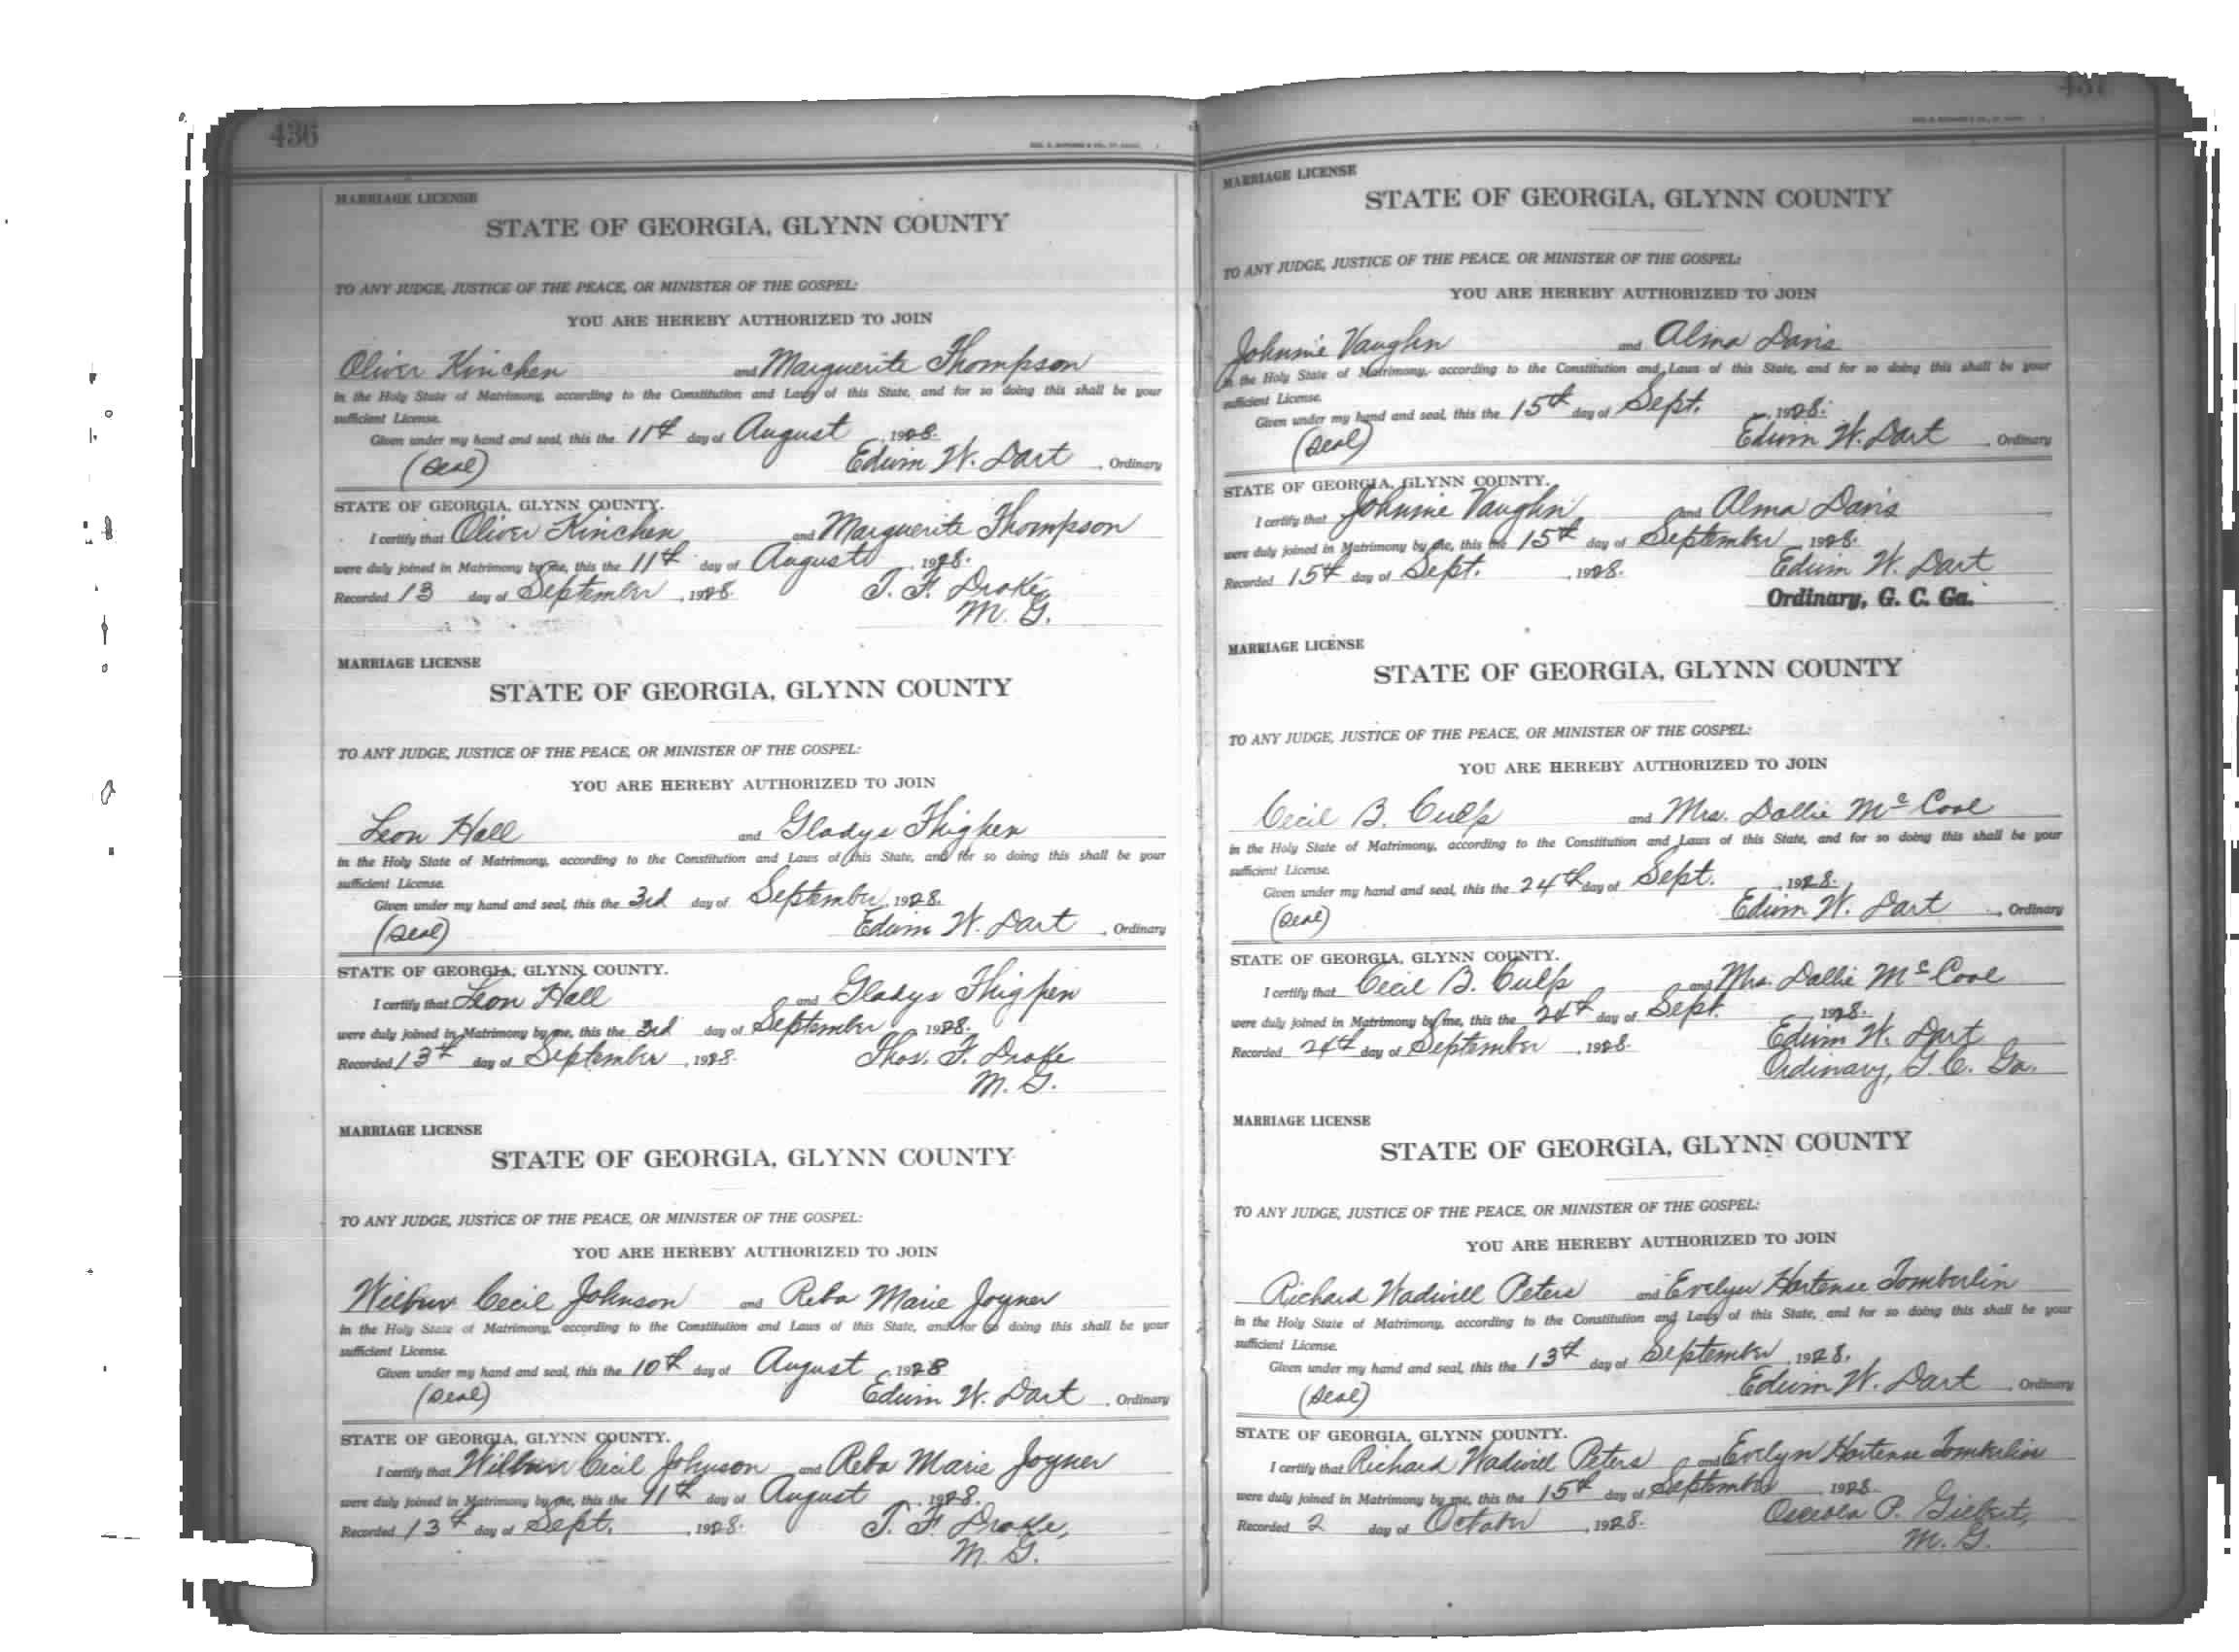 436
MARRIAGE LICENSE
STATE OF GEORGIA, GLYNN COUNTY
TO ANY JUDGE, JUSTICE OF THE PEACE, OR MINISTER OF THE GOSPEL:
YOU ARE HEREBY AUTHORIZED TO JOIN
Oliver Kinchen and Marguerite Thompson
in the Holy State of Matrimony, according to the Constitution and Laws of this State, and for so doing this shall be your
sufficient License.
Given under my hand and seal, this the 11th day of August, 1928.
(Seal) Edwin W. Dart, Ordinary
STATE OF GEORGIA, GLYNN COUNTY.
I certify that Oliver Kinchen and Marguerite Thompson
were duly joined in Matrimony by me, this the 11th day of August, 1928.
Recorded 13 day of September, 1928. T. F. Drake,
M. G.
MARRIAGE LICENSE
STATE OF GEORGIA, GLYNN COUNTY
TO ANY JUDGE, JUSTICE OF THE PEACE, OR MINISTER OF THE GOSPEL:
YOU ARE HEREBY AUTHORIZED TO JOIN
Leon Hall and Gladys Thigpen
in the Holy State of Matrimony, according to the Constitution and Laws of this State, and for so doing this shall be your
sufficient License.
Given under my hand and seal, this the 3rd day of September, 1928.
(Seal) Edwin W. Dart, Ordinary
STATE OF GEORGIA, GLYNN COUNTY.
I certify that Leon Hall and Gladys Thigpen
were duly joined in Matrimony by me, this the 3rd day of September, 1928.
Recorded 13th day of September, 1928. Thos. F. Drake
M. G.
MARRIAGE LICENSE
STATE OF GEORGIA, GLYNN COUNTY
TO ANY JUDGE, JUSTICE OF THE PEACE, OR MINISTER OF THE GOSPEL:
YOU ARE HEREBY AUTHORIZED TO JOIN
Wilbur Cecil Johnson and Reba Marie Joyner
in the Holy State of Matrimony, according to the Constitution and Laws of this State, and for so doing this shall be your
sufficient License.
Given under my hand and seal, this the 10th day of August, 1928
(Seal) Edwin W. Dart, Ordinary
STATE OF GEORGIA, GLYNN COUNTY.
I certify that Wilbur Cecil Johnson and Reba Marie Joyner
were duly joined in Matrimony by me, this the 11th day of August, 1928.
Recorded 13th day of Sept., 1928. T. F. Drake,
M. G.
437
MARRIAGE LICENSE
STATE OF GEORGIA, GLYNN COUNTY
TO ANY JUDGE, JUSTICE OF THE PEACE, OR MINISTER OF THE GOSPEL:
YOU ARE HEREBY AUTHORIZED TO JOIN
Johnnie Vaughn and Alma Davis
in the Holy State of Matrimony, according to the Constitution and Laws of this State, and for so doing this shall be your
sufficient License.
Given under my hand and seal, this the 15th day of Sept., 1928.
(Seal) Edwin W. Dart, Ordinary
STATE OF GEORGIA, GLYNN COUNTY.
I certify that Johnnie Vaughn and Alma Davis
were duly joined in Matrimony by me, this the 15th day of September, 1928.
Recorded 15th day of Sept., 1928. Edwin W. Dart
Ordinary, G. C. Ga.
MARRIAGE LICENSE
STATE OF GEORGIA, GLYNN COUNTY
TO ANY JUDGE, JUSTICE OF THE PEACE, OR MINISTER OF THE GOSPEL:
YOU ARE HEREBY AUTHORIZED TO JOIN
Cecil B. Culp and Mrs. Dallie McCool
in the Holy State of Matrimony, according to the Constitution and Laws of this State, and for so doing this shall be your
sufficient License.
Given under my hand and seal, this the 24th day of Sept., 1928.
(Seal) Edwin W. Dart, Ordinary
STATE OF GEORGIA, GLYNN COUNTY.
I certify that Cecil B. Culp and Mrs. Dallie McCool
were duly joined in Matrimony by me, this the 24th day of Sept., 1928.
Recorded 24th day of September, 1928. Edwin W. Dart
Ordinary, G. C. Ga.
MARRIAGE LICENSE
STATE OF GEORGIA, GLYNN COUNTY
TO ANY JUDGE, JUSTICE OF THE PEACE, OR MINISTER OF THE GOSPEL:
YOU ARE HEREBY AUTHORIZED TO JOIN
Richard Wadwill Peters and Evelyn Hortense Tomberlin
in the Holy State of Matrimony, according to the Constitution and Laws of this State, and for so doing this shall be your
sufficient License.
Given under my hand and seal, this the 13th day of September, 1928.
(Seal) Edwin W. Dart, Ordinary
STATE OF GEORGIA, GLYNN COUNTY.
I certify that Richard Wadwill Peters and Evelyn Hortense Tomberlin
were duly joined in Matrimony by me, this the 15th day of September, 1928.
Recorded 2 day of October, 1928. Osceola P. Gilbert,
M. G.